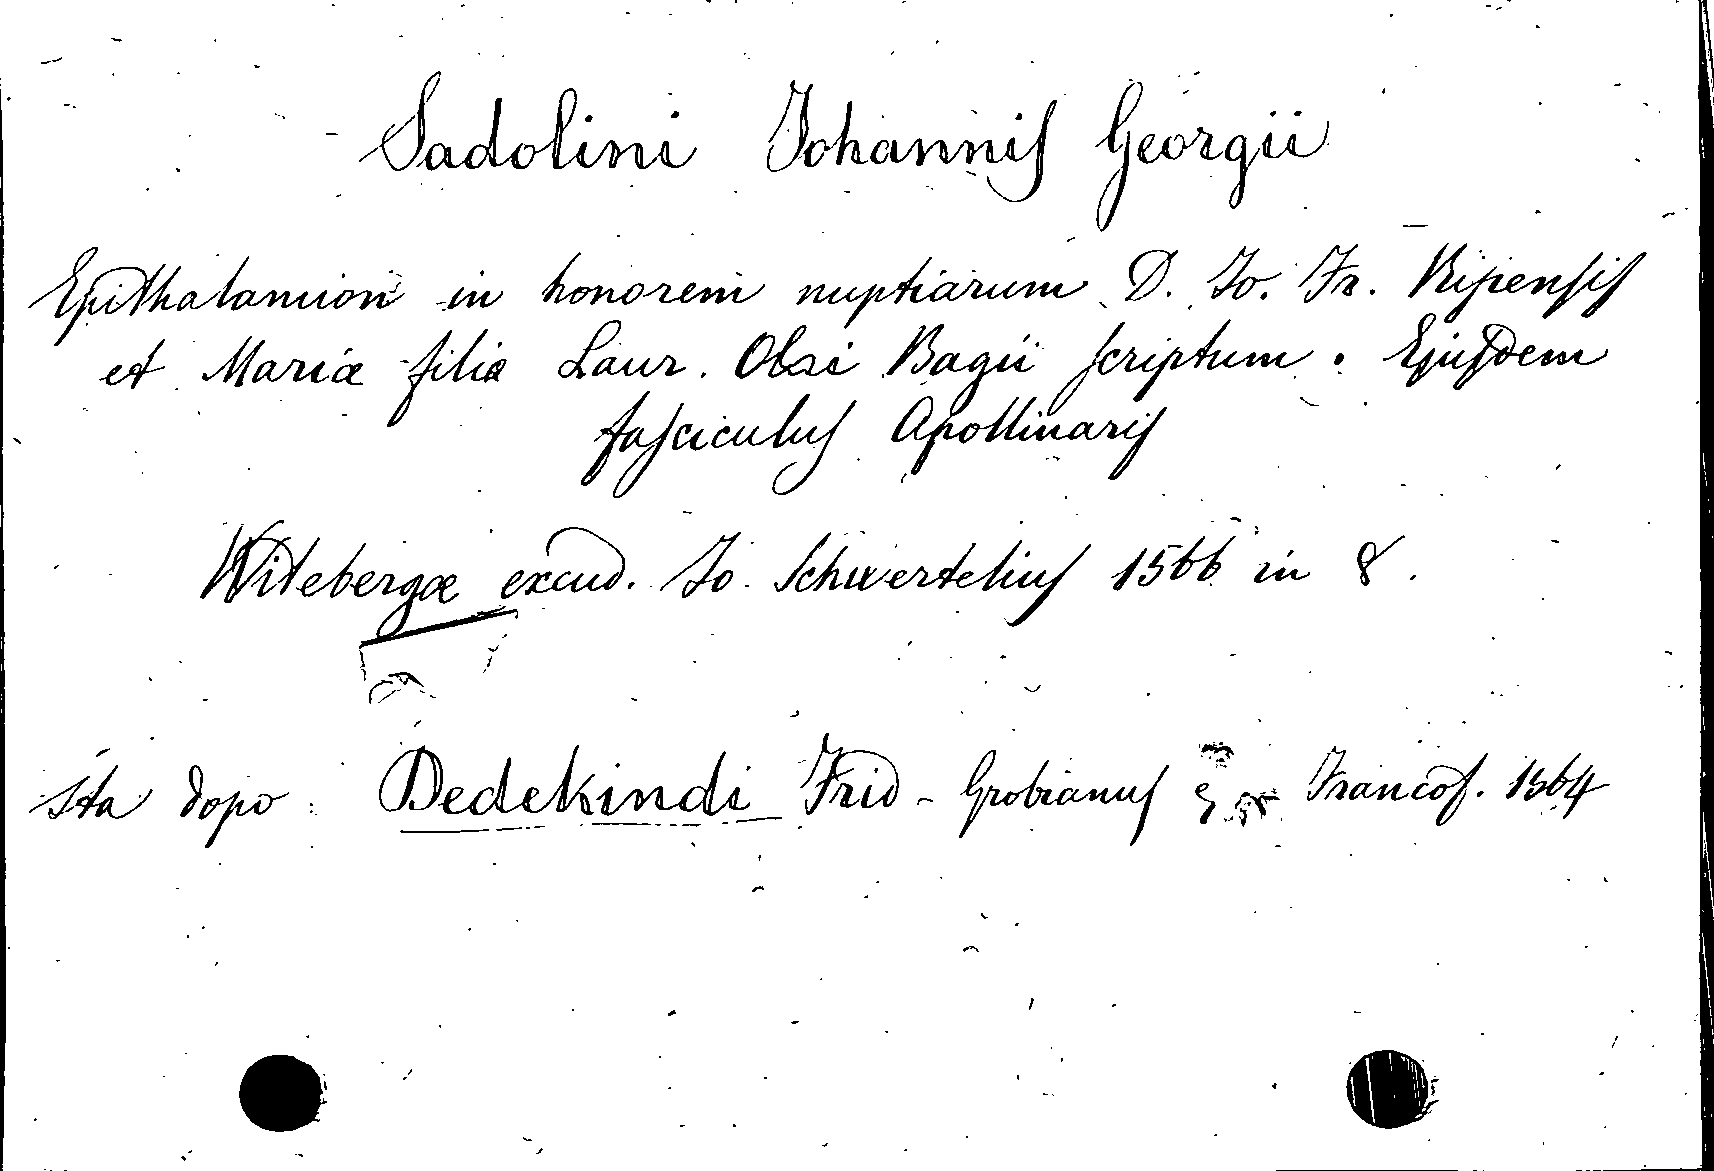 Sadolini Johannis Georgii
Epithalamion in honorem nuptiarum D. Jo. Fr. Ripensis
et Mariæ filiæ Laur. Olai Bagii scriptum. Ejusdem
fasciculus Apollinaris
Witebergæ excud. Jo. Schwertelius 1566 in 8.
Sta dopo Dedekindi Frid - Grobianus Francof. 1564